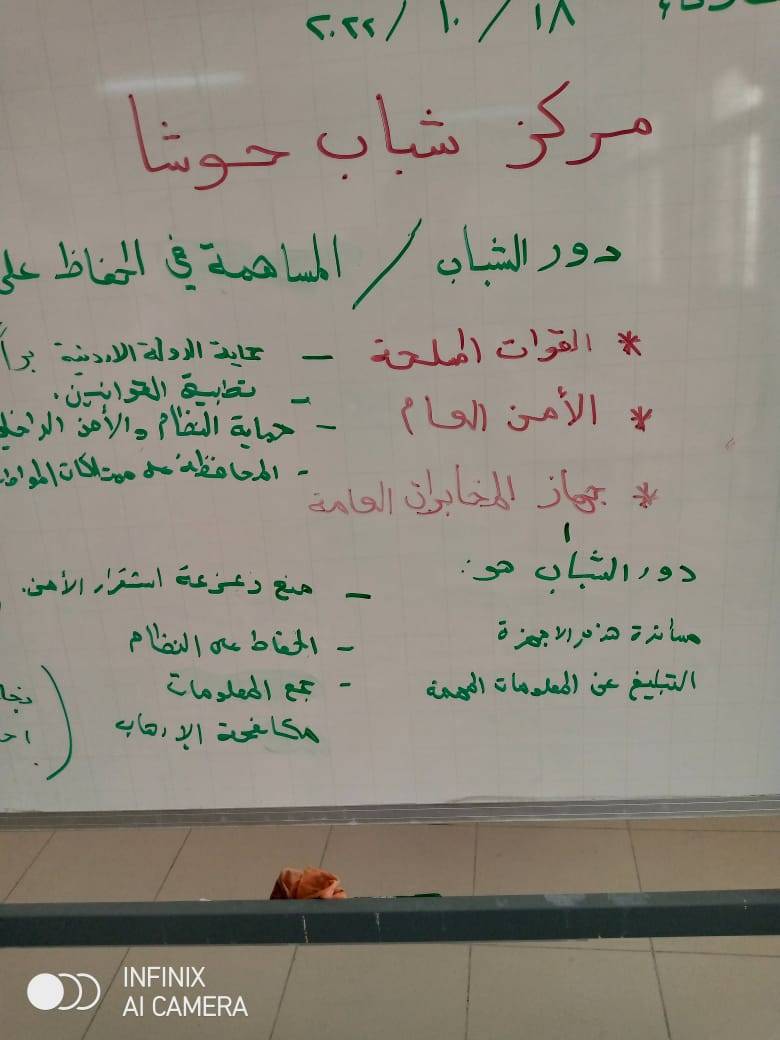 ١٨ / ١٠ / ٢٠٢٢
مركز شباب حوشا
دور الشباب / المساهمة في الحفاظ على
* القوات المسلحة – حماية الدولة الاردنية براً
- تطبيق القوانين.
* الأمن العام - حماية النظام والأمن الداخلي
- المحافظة على ممتلكات المواط
* جهاز المخابرات العامة
دور الشباب هو: – منع زعزعة استقرار الأمن.
مساندة هذه الاجهزة - الحفاظ على النظام
التبليغ عن المعلومات المهمة - جمع المعلومات
مكافحة الإرهاب
INFINIX
AI CAMERA